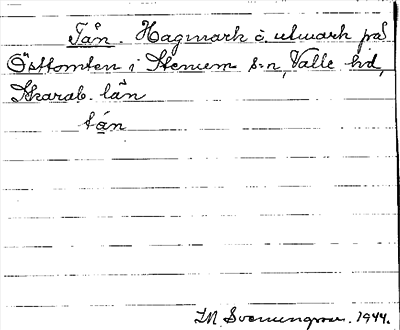 Tån. Hagmark o. utmark på
Östtomten i Stenum s:n, Valle hd,
Skarab. län
tån
I.M. Svenungsson. 1944.